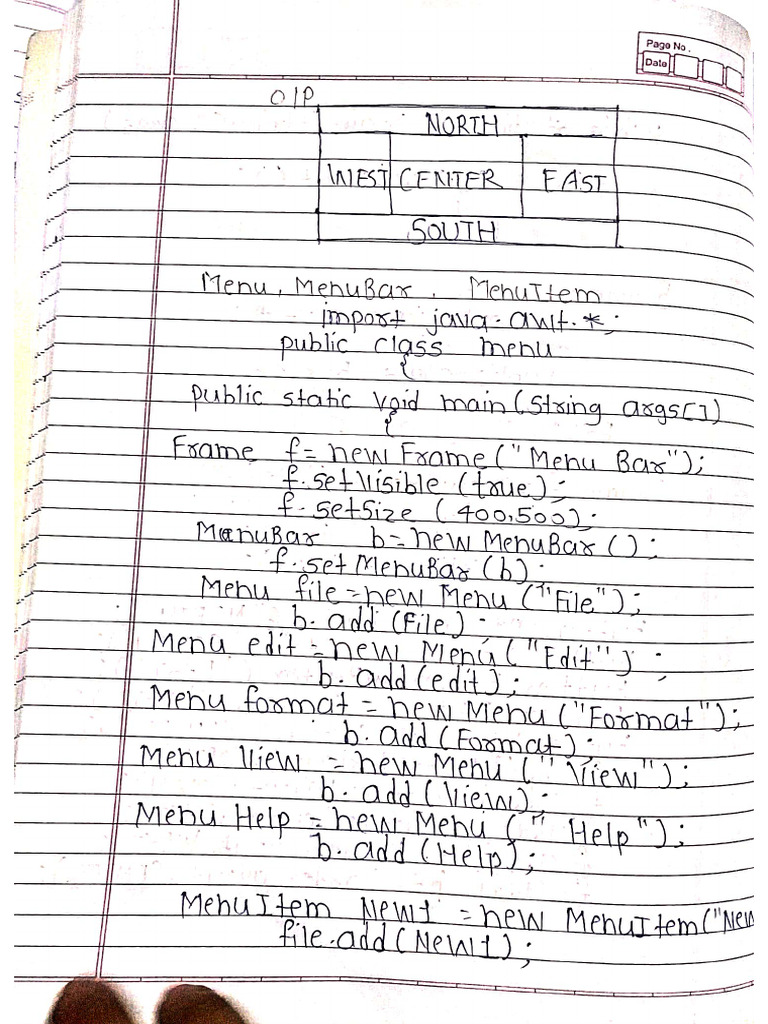 Page No.
Date
O/P
NORTH
WEST CENTER EAST
SOUTH
Menu, MenuBar, MenuItem
import java.awt.*;
public class menu
{
public static void main(String args[])
{
Frame f= new Frame("Menu Bar");
f.setVisible (true);
f.setSize (400,500);
MenuBar b= new MenuBar ();
f.setMenuBar (b);
Menu file= new Menu ("File");
b.add (File);
Menu edit = new Menu ("Edit");
b.add(edit);
Menu format = new Menu ("Format");
b.add (Format);
Menu View = new Menu (" View");
b.add (View);
Menu Help = new Menu (" Help");
b.add (Help);
MenuItem New1 = new MenuItem("New
file.add(New1);